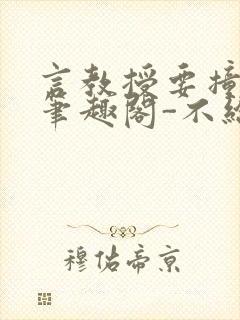 言教授要撞
笔趣阁-不纟
穆佑帝京